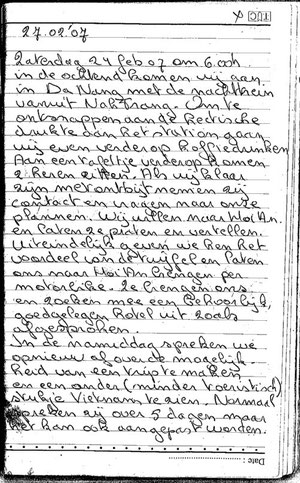 27.02.'07
Zaterdag 24 feb 07 om 6.00h
in de ochtend komen wij aan
in Da Nang met de nachttrein
vanuit Nah Trang. Om te
ontsnappen aan de hectische
drukte van het station gaan
wij even verderop koffie drinken
Aan een tafeltje verderop komen
2 heren zitten. Als wij klaar
zijn met ontbijt nemen zij
contact en vragen naar onze
plannen. Wij willen naar Hoi An
en laten ze praten en vertellen.
Uiteindelijk geven we hen het
voordeel van de twijfel en laten
ons naar Hoi An brengen per
motorbike. Ze brengen ons
en zoeken mee een behoorlijk,
goedgelegen hotel uit zoals
afgesproken.
In de namiddag spreken we
opnieuw af over de mogelijk-
heid van een trip te maken
en een ander (minder toeristisch)
stukje Vietnam te zien. Normaal
spreken zij over 5 dagen maar
het kan ook aangepast worden.
Date :